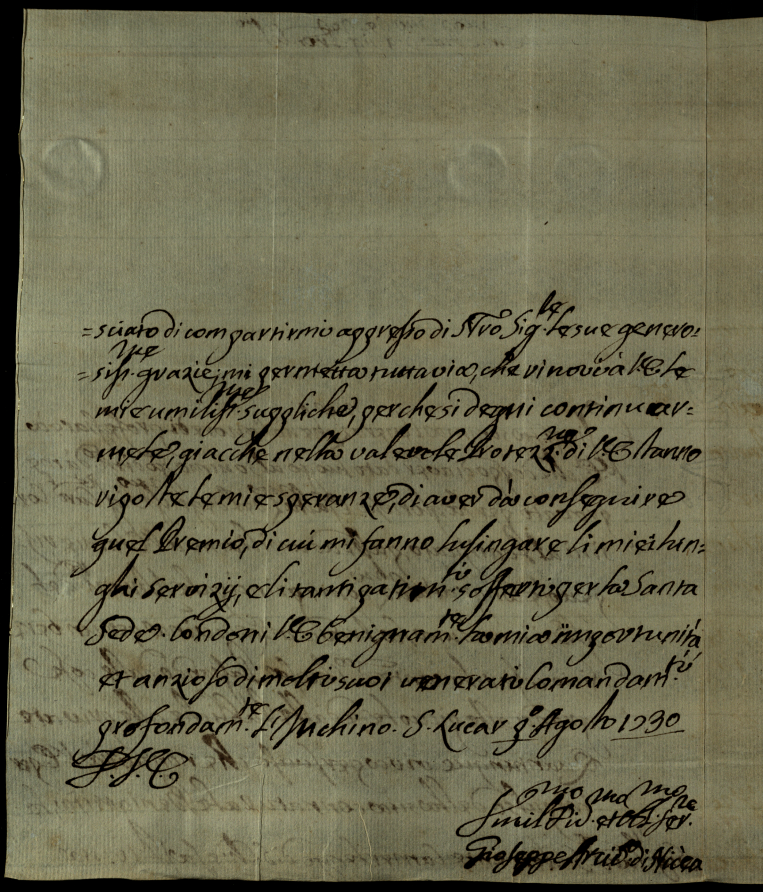 =sciato di compartirmi appresso di Nro Sigre le sue genero=
=sisme grazie; mi permetta tuttavia, che rinovi à V.E. le
mie umilissme suppliche, perche si degni continuar=
mele, giacche nella valevole Protezne di V.E. stanno
riposte le mie speranze, di aver da conseguire
quel Premio, di cui mi fanno lusingare li miei lun=
ghi servizij, e li tanti patimti sofferti per la Santa
Sede. Condoni V.E. benignamte la mia importunità
et anzioso di molti suoi venerati Comandamti
profondamte L'Inchino. S. Lucar po Agosto 1730
D.V.E.
Umilmo Divmo et Obmo Serre
Gioseppe Arcivo di Nicea